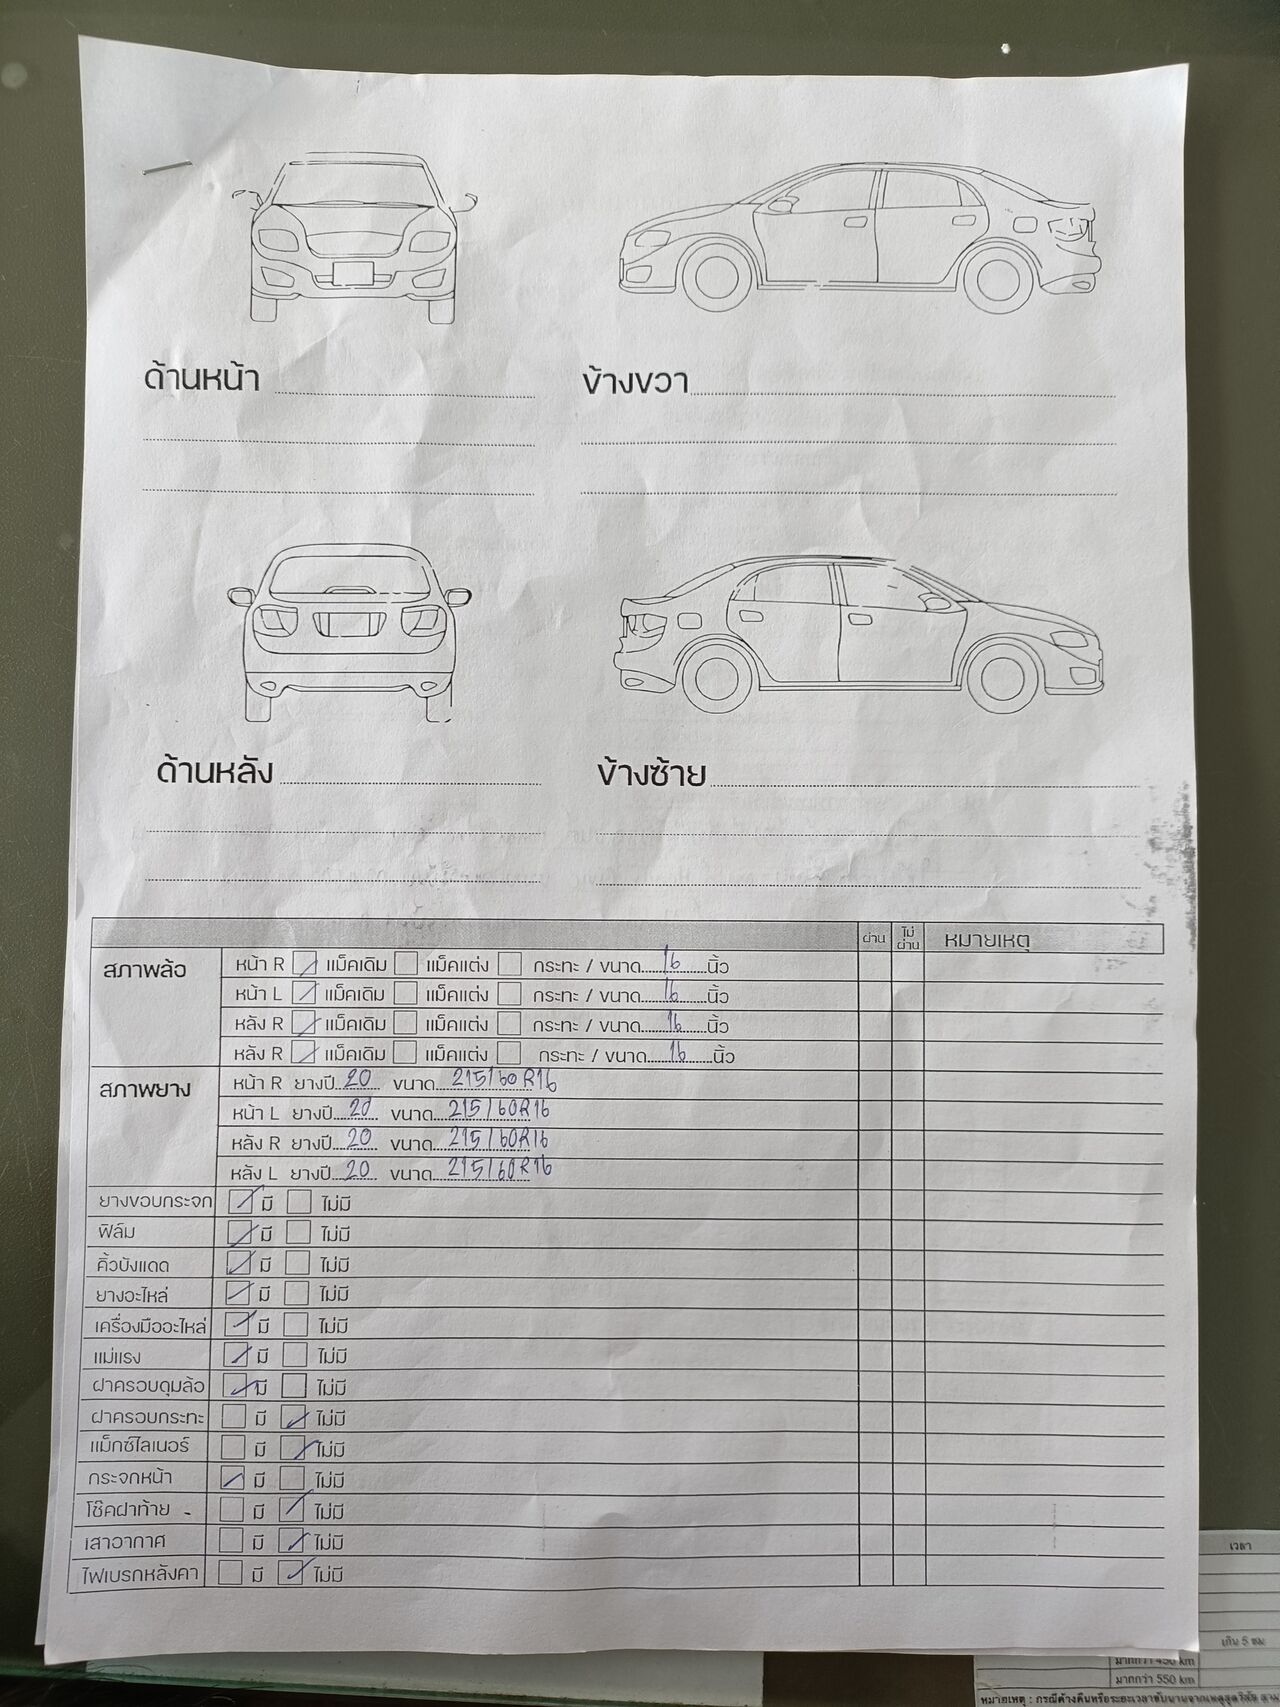 ด้านหน้า
ข้างขวา
ด้านหลัง
ข้างซ้าย
ผ่าน ไม่ผ่าน หมายเหตุ
สภาพล้อ หน้า R แม็คเดิม แม็คแต่ง กระทะ / ขนาด 16 นิ้ว
หน้า L แม็คเดิม แม็คแต่ง กระทะ / ขนาด 16 นิ้ว
หลัง R แม็คเดิม แม็คแต่ง กระทะ / ขนาด 16 นิ้ว
หลัง R แม็คเดิม แม็คแต่ง กระทะ / ขนาด 16 นิ้ว
สภาพยาง หน้า R ยางปี 20 ขนาด 215/60R16
หน้า L ยางปี 20 ขนาด 215/60R16
หลัง R ยางปี 20 ขนาด 215/60R16
หลัง L ยางปี 20 ขนาด 215/60R16
ยางขอบกระจก มี ไม่มี
ฟิล์ม มี ไม่มี
คิ้วบังแดด มี ไม่มี
ยางอะไหล่ มี ไม่มี
เครื่องมืออะไหล่ มี ไม่มี
แม่แรง มี ไม่มี
ฝาครอบดุมล้อ มี ไม่มี
ฝาครอบกระทะ มี ไม่มี
แม็กซ์ไลเนอร์ มี ไม่มี
กระจกหน้า มี ไม่มี
โช๊คฝาท้าย - มี ไม่มี
เสาอากาศ มี ไม่มี
ไฟเบรกหลังคา มี ไม่มี
เวลา
เกิน 5 ชม
มากกว่า 450 km
มากกว่า 550 km
หมายเหตุ : กรณีค้างคืนหรือระยะเวลาขับนานจากเหตุสุดวิสัย